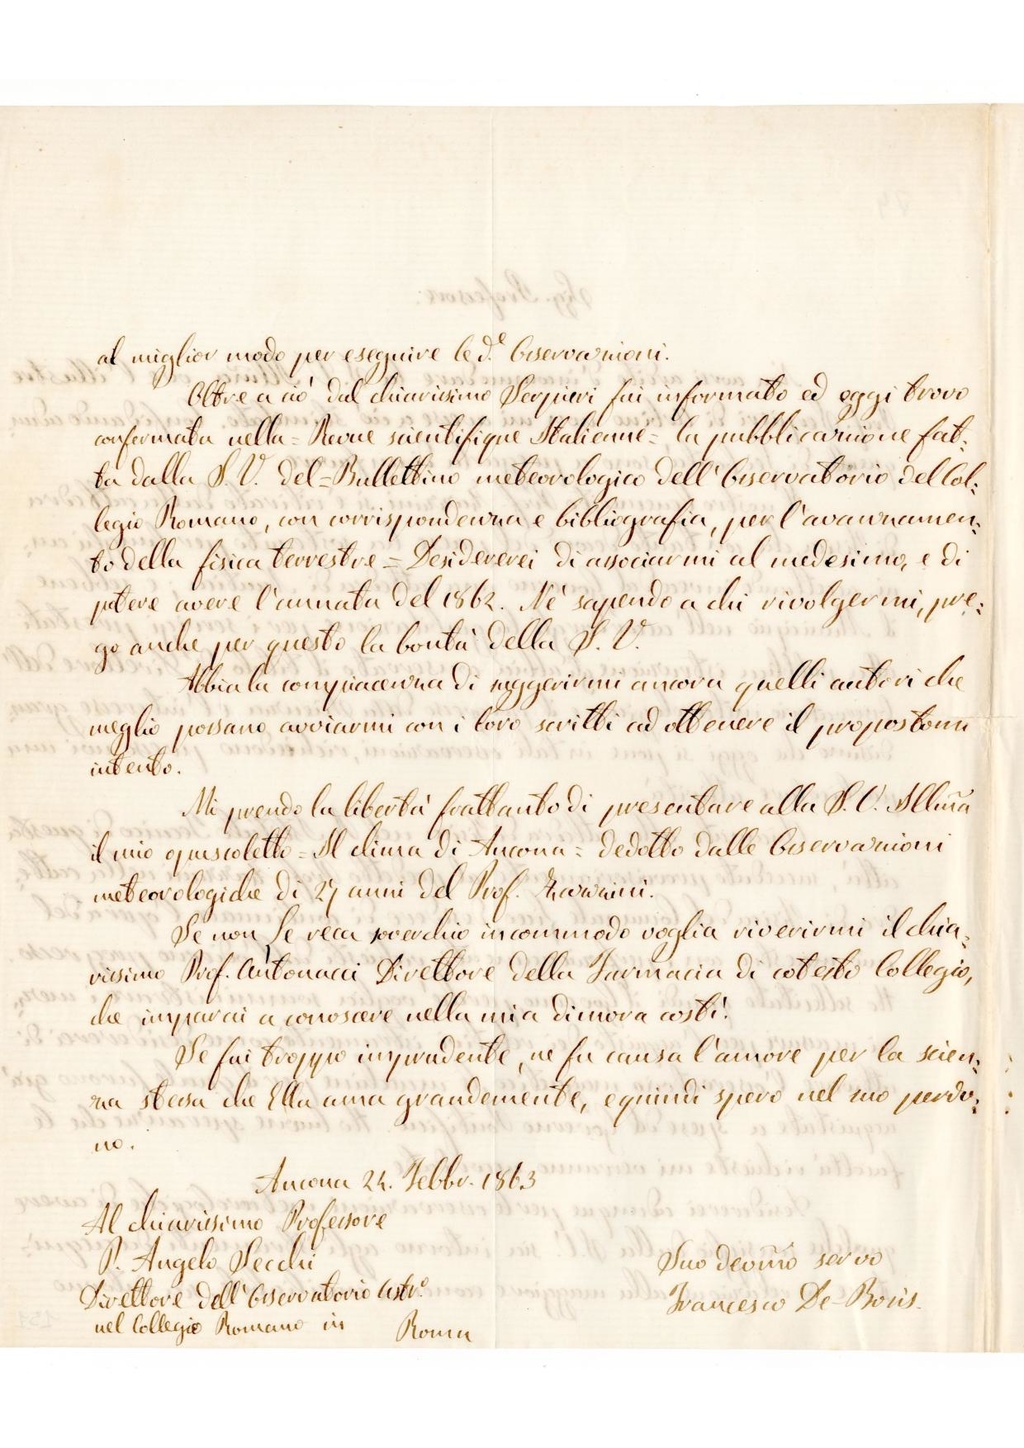 al miglior modo per eseguire le d.e Osservazioni.
Oltre a ciò dal chiarissimo Serpieri fui informato ed oggi trovo
confermata nella = Revue scientifique Italienne = la pubblicazione fat-
ta dalla S. V. del = Bullettino meteorologico dell'Osservatorio del Col-
legio Romano, con corrispondenza e bibliografia, per l'avanzamen-
to della fisica terrestre = Desidererei di associarmi al medesimo, e di
potere avere l'annata del 1862. Nè sapendo a chi rivolgermi, pre-
go anche per questo la bontà della S. V.
Abbia la compiacenza di suggerirmi ancora quelli autori che
meglio possano avviarmi con i loro scritti ad ottenere il propostomi
intento.
Mi prendo la libertà frattanto di presentare alla S. V. Illma
il mio opuscoletto = Il clima di Ancona = dedotto dalle Osservazioni
meteorologiche di 27 anni del Prof. Zazzini.
Se non Le reca soverchio incommodo voglia riverirmi il chia-
rissimo Prof. Antonacci Direttore della Farmacia di cotesto Collegio,
che imparai a conoscere nella mia dimora costì!
Se fui troppo imprudente, ne fu causa l'amore per la scien-
za stessa che Ella ama grandemente, e quindi spero nel suo perdo-
no.
Ancona 24. Febbr. 1863
Al chiarissimo Professore
P. Angelo Secchi
Direttore dell'Osservatorio Astr.o
nel Collegio Romano in Roma
Suo devmo servo
Francesco De-Bosis.